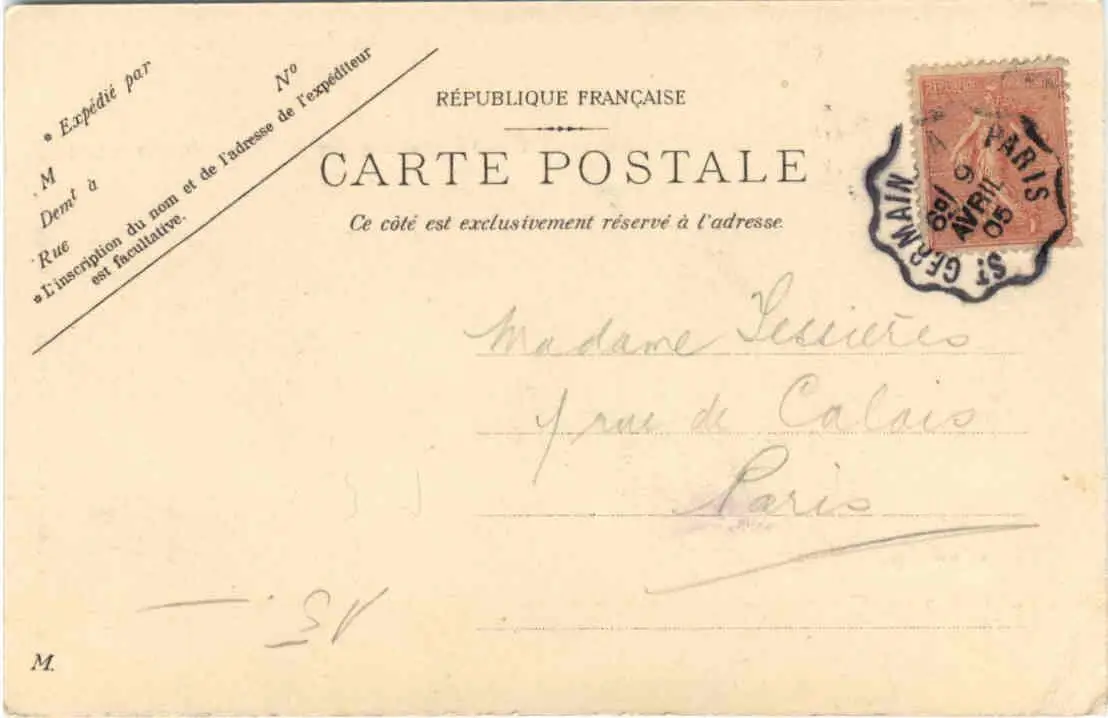 * Expédié par
M N°
Demᵗ à
Rue
*L'inscription du nom et de l'adresse de l'expéditeur
est facultative.
RÉPUBLIQUE FRANÇAISE
CARTE POSTALE
Ce côté est exclusivement réservé à l'adresse.
PARIS
9
AVRIL
05
Sᵀ GERMAIN
Madame Tessières
1 rue de Calais
Paris
M.